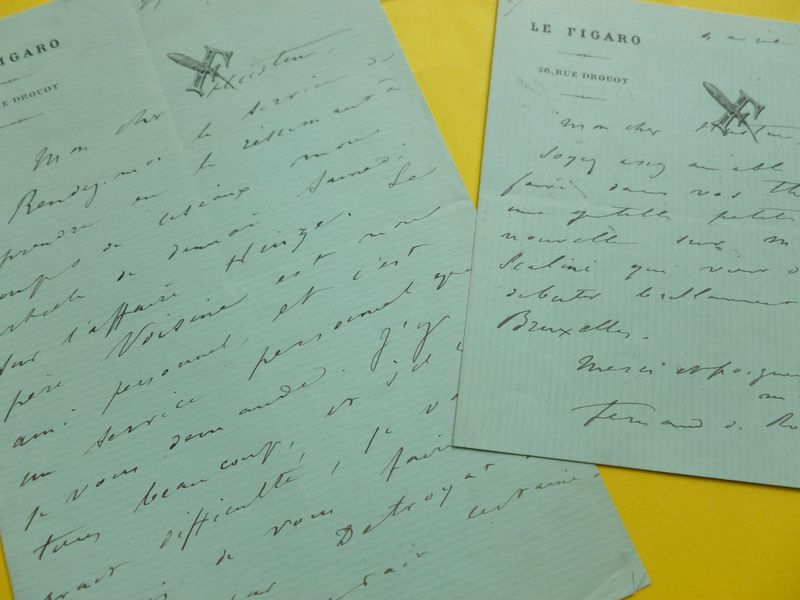 FIGARO
RUE DROUOT
F
Mon cher
Rendez-moi le service de
prendre en le résumant à
coups de ciseaux mon
article de demain Samedi
sur l'affaire Le
père Voisin est mon
ami personnel, et c'est
un service personnel que
je vous demande. J'y
tiens beaucoup, et s'il
avait difficulté, je
de vous faire
par Détroyat
LE FIGARO
26, RUE DROUOT
F
Mon cher
Soyez assez aimable
dans vos
une gentille petite
nouvelle sur
qui vient
débuter brillamment
Bruxelles.
Merci et poignée
Fernand de Ro